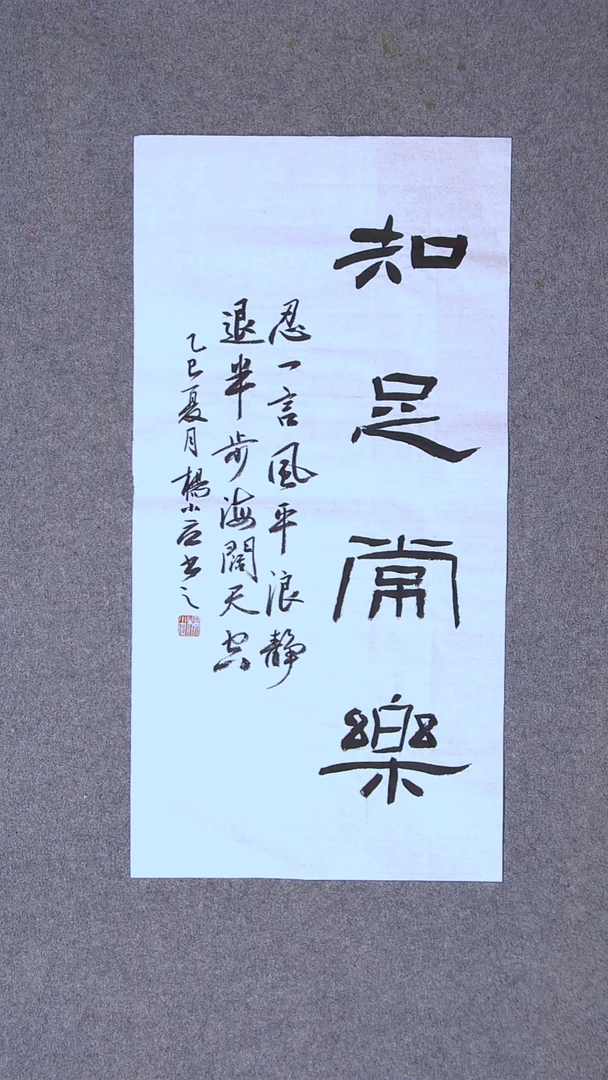 知足常樂
忍一言風平浪静
退半步海闊天空
乙巳夏月楊小石書之